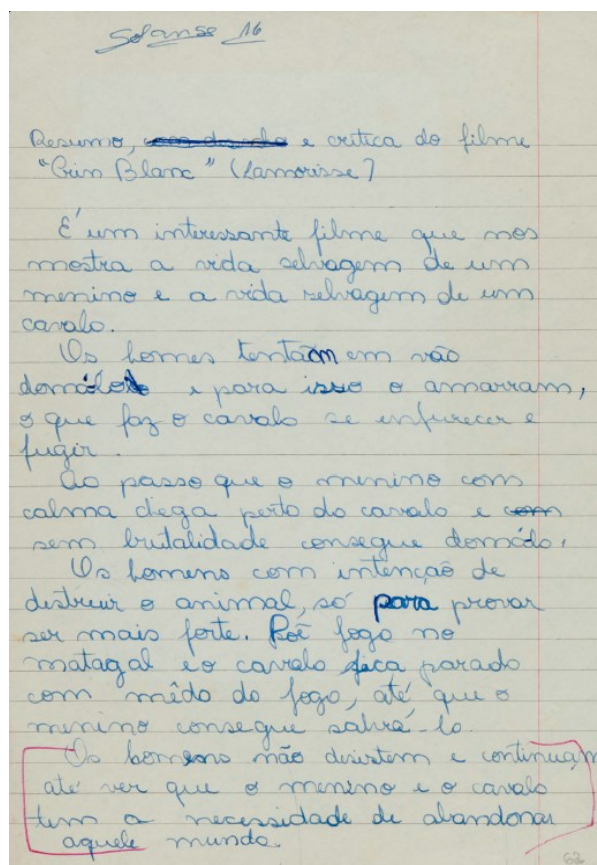 Solange 16
Resumo, e critica do filme
"Crin Blanc" (Lamorisse)
É um interessante filme que nos
mostra a vida selvagem de um
menino e a vida selvagem de um
cavalo.
Os homes tentam em vão
domálo e para isso o amarram,
o que faz o cavalo se enfurecer e
fugir.
Ao passo que o menino com
calma chega perto do cavalo e
sem brutalidade consegue domálo.
Os homens com intenção de
distruir o animal, só para provar
ser mais forte. Põe fogo no
matagal e o cavalo fica parado
com mêdo do fogo, até que o
menino consegue salvá-lo.
Os homens não disistem e continuam
até ver que o menino e o cavalo
tem a necessidade de abandonar
aquele mundo.
62